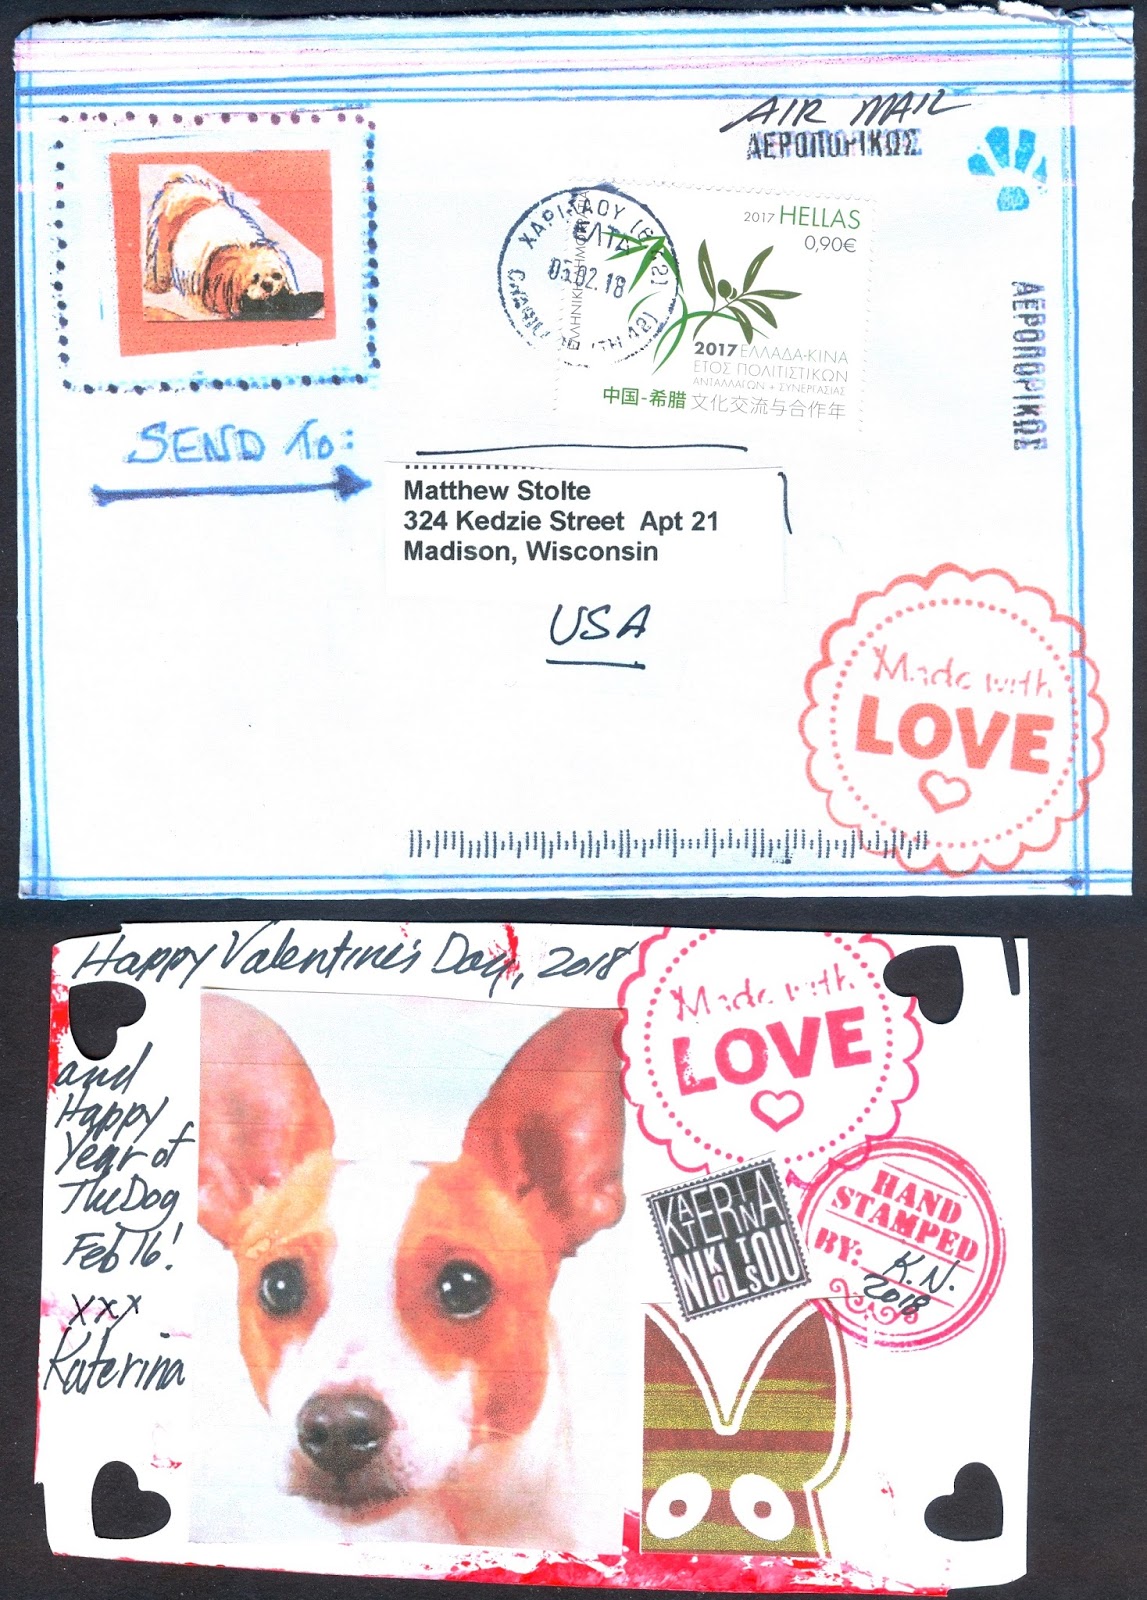 AIR MAIL
ΑΕΡΟΠΟΡΙΚΩΣ
2017 HELLAS
0,90€
ΕΛΤΑ
02.18
2017 ΕΛΛΑΔΑ-ΚΙΝΑ
ΕΤΟΣ ΠΟΛΙΤΙΣΤΙΚΩΝ
ΑΝΤΑΛΛΑΓΩΝ + ΣΥΝΕΡΓΑΣΙΑΣ
中国-希腊 文化交流与合作年
ΑΕΡΟΠΟΡΙΚΩΣ
SEND To:
Matthew Stolte
324 Kedzie Street Apt 21
Madison, Wisconsin
USA
Made with
LOVE
Happy Valentine's Day, 2018
and
Happy
Year of
The Dog
Feb 16!
xxx
Katerina
Made with
LOVE
KATERINA
NIKOLTSOU
HAND
STAMPED
BY: K.N.
2018